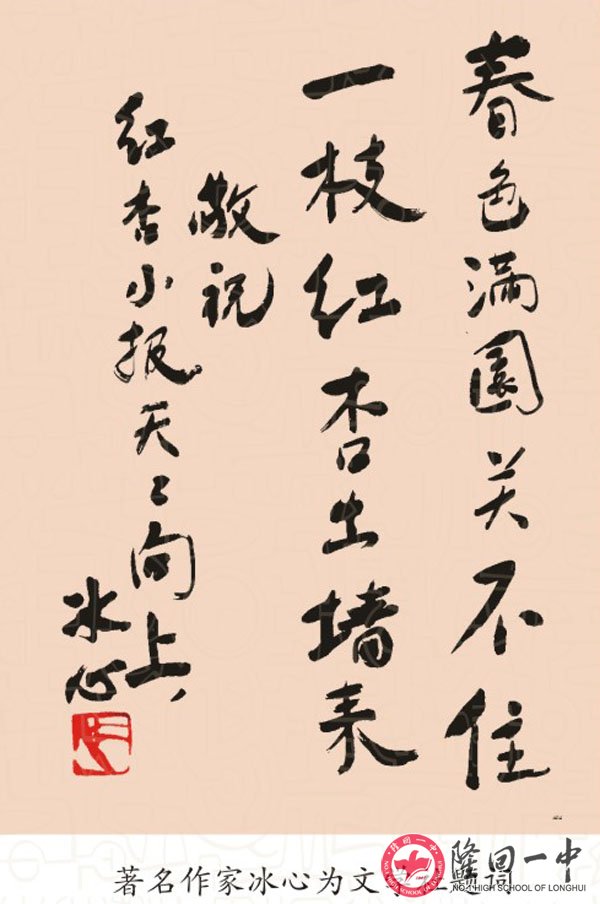 春色满園关不住
一枝红杏出墙来
敬祝
红杏小报天〻向上
冰心
著名作家冰心为文
题词
隆回一中
NO.1 HIGH SCHOOL OF LONGHUI